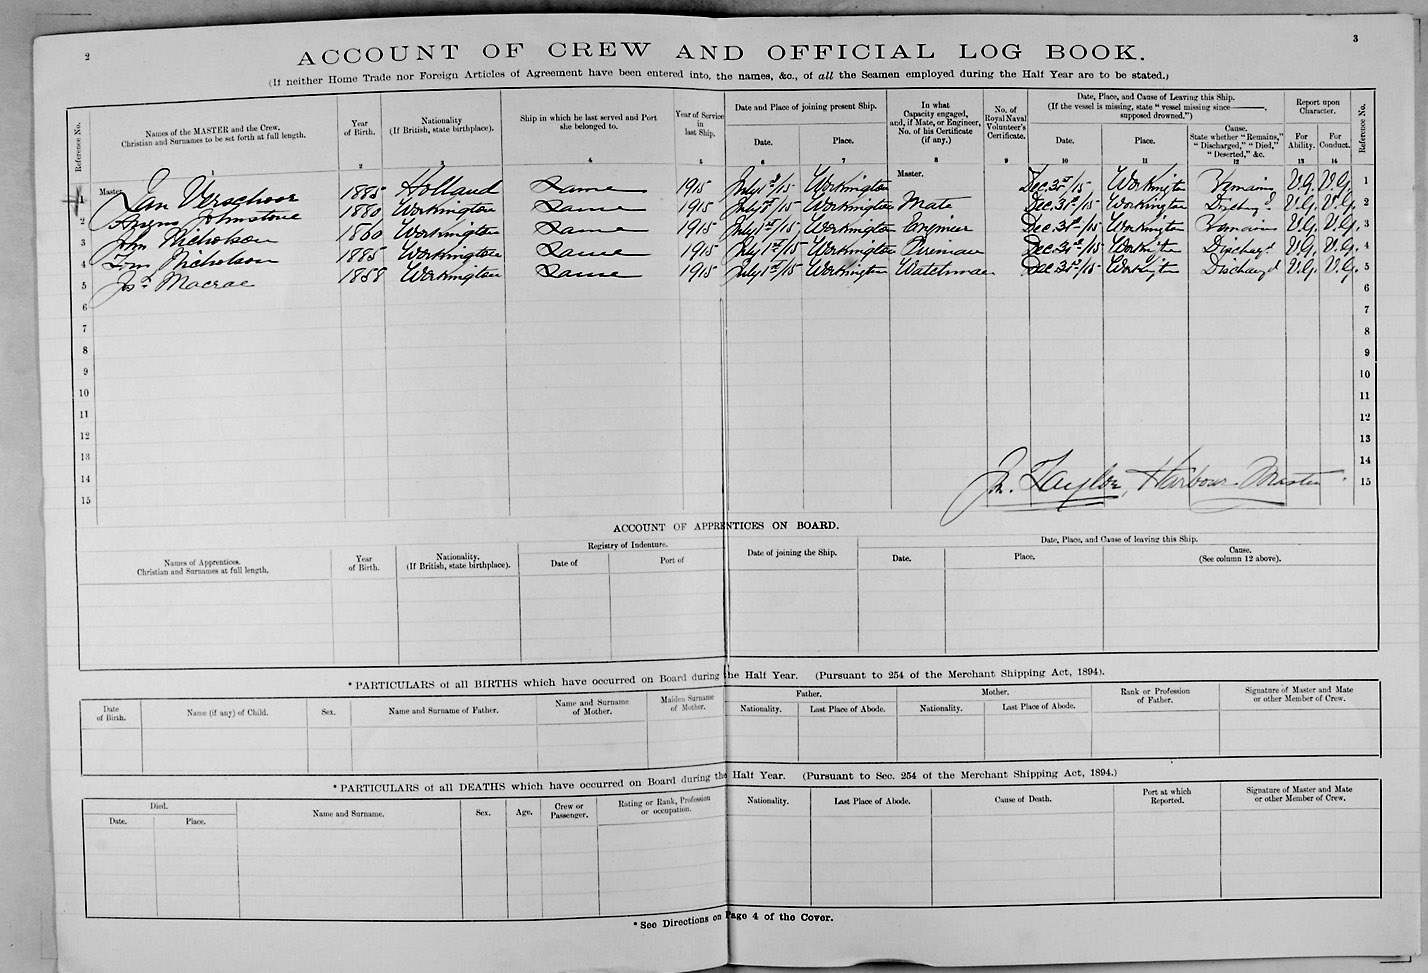 2
3
ACCOUNT OF CREW AND OFFICIAL LOG BOOK.
(If neither Home Trade nor Foreign Articles of Agreement have been entered into, the names, &c., of all the Seamen employed during the Half Year are to be stated.)
Reference No.
Names of the MASTER and the Crew. Christian and Surnames to be set forth at full length.
Year of Birth.
Nationality (If British, state birthplace).
Ship in which he last served and Port she belonged to.
Year of Service in last Ship.
Date and Place of joining present Ship.
Date.
Place.
In what Capacity engaged, and, if Mate, or Engineer, No. of his Certificate (if any.)
No. of Royal Naval Volunteer's Certificate.
Date, Place, and Cause of Leaving this Ship. (If the vessel is missing, state "vessel missing since ——, supposed drowned.")
Date.
Place.
Cause. State whether "Remains," "Discharged," "Died," "Deserted," &c.
Report upon Character.
For Ability.
For Conduct.
Reference No.
1 2 3 4 5 6 7 8 9 10 11 12 13 14
1 Master. Jan Verschoor 1885 Holland Same 1915 July 1st/15 Workington Master. Dec 31st/15 Workington Remains V.G. V.G. 1
2 Johnstone 1880 Workington Same 1915 July 1st/15 Workington Mate Dec 31st/15 Workington Dischgd V.G. V.G. 2
3 John Nicholson 1860 Workington Same 1915 July 1st/15 Workington Engineer Dec 31st/15 Workington Remains V.G. V.G. 3
4 Nicholson 1885 Workington Same 1915 July 1st/15 Workington Fireman Dec 31st/15 Worki't'n Dischargd V.G. V.G. 4
5 Jos. Macrae 1858 Workington Same 1915 July 1st/15 Workington Watchman Dec 31st/15 Work'gt'n Dischargd V.G. V.G. 5
6 6
7 7
8 8
9 9
10 10
11 11
12 12
13 13
14 14
15 15
Jn. Taylor, Harbour Master.
ACCOUNT OF APPRENTICES ON BOARD.
Names of Apprentices. Christian and Surnames at full length.
Year of Birth.
Nationality. (If British, state birthplace).
Registry of Indenture.
Date of
Port of
Date of joining the Ship.
Date, Place, and Cause of leaving this Ship.
Date.
Place.
Cause. (See column 12 above).
* PARTICULARS of all BIRTHS which have occurred on Board during the Half Year. (Pursuant to 254 of the Merchant Shipping Act, 1894).
Date of Birth.
Name (if any) of Child.
Sex.
Name and Surname of Father.
Name and Surname of Mother.
Maiden Surname of Mother.
Father.
Nationality.
Last Place of Abode.
Mother.
Nationality.
Last Place of Abode.
Rank or Profession of Father.
Signature of Master and Mate or other Member of Crew.
* PARTICULARS of all DEATHS which have occurred on Board during the Half Year. (Pursuant to Sec. 254 of the Merchant Shipping Act, 1894.)
Died.
Date.
Place.
Name and Surname.
Sex.
Age.
Crew or Passenger.
Rating or Rank, Profession or occupation.
Nationality.
Last Place of Abode.
Cause of Death.
Port at which Reported.
Signature of Master and Mate or other Member of Crew.
* See Directions on Page 4 of the Cover.